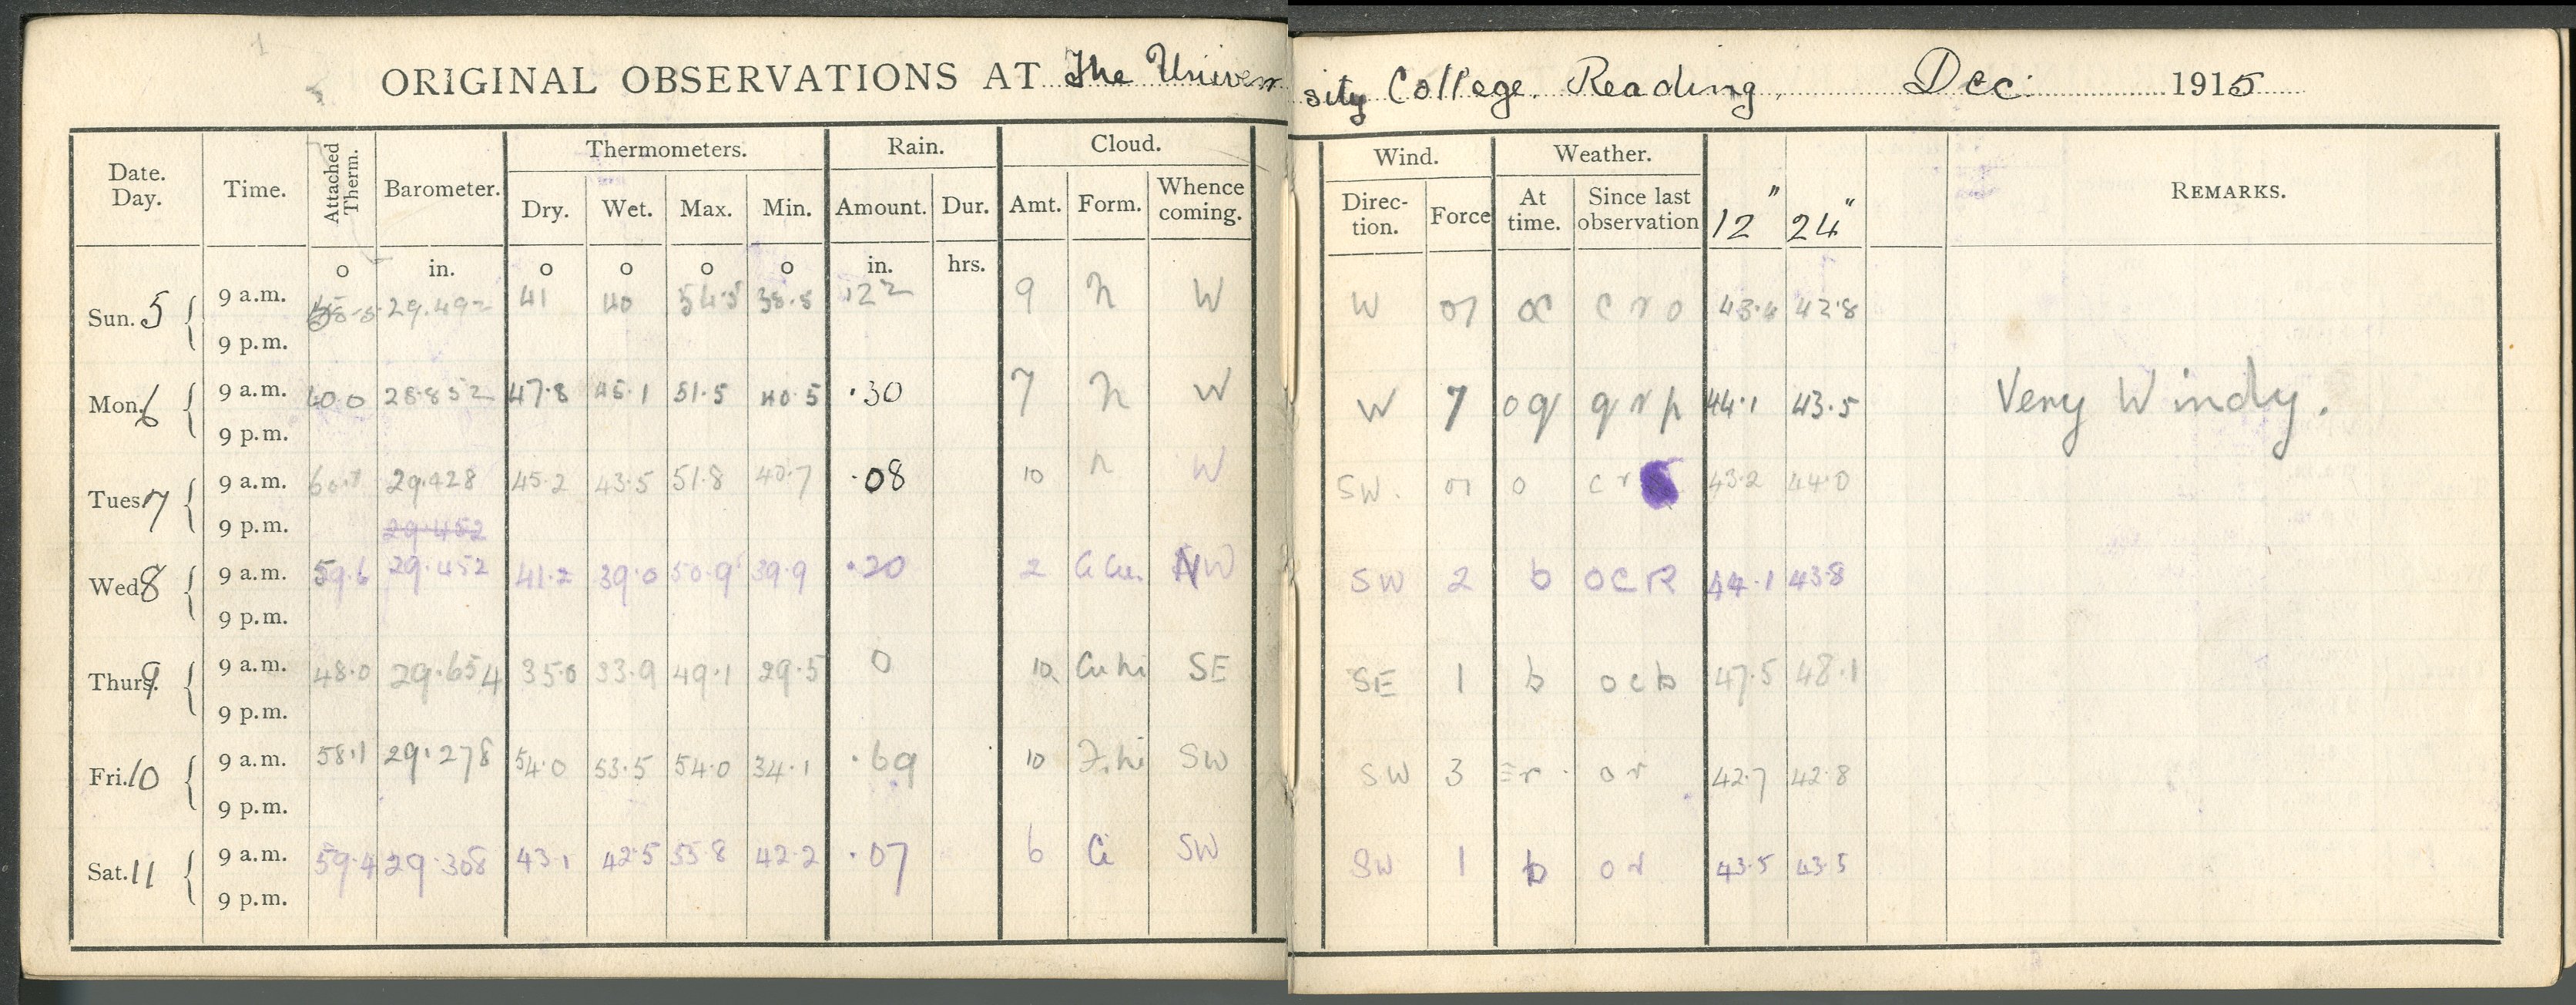 ORIGINAL OBSERVATIONS AT The University College. Reading. Dec: 1915
Thermometers. Rain. Cloud. Wind. Weather.
Date. Day. Time. Attached Therm. Barometer. Dry. Wet. Max. Min. Amount. Dur. Amt. Form. Whence coming. Direction. Force At time. Since last observation 12" 24" REMARKS.
o in. o o o o in. hrs.
Sun. 5 9 a.m. 29.492 41 40 54.5 38.5 .22 9 n W W oc c r o 43.4 42.8
9 p.m.
Mon. 6 9 a.m. 60.0 28.852 47.8 45.1 51.5 40.5 .30 7 n W W 7 o q q r p 44.1 43.5 Very Windy.
9 p.m.
Tues. 7 9 a.m. 29.428 45.2 43.5 51.8 40.7 .08 10 n W SW. o c r 43.2 44.0
9 p.m. 29.452
Wed. 8 9 a.m. 59.6 29.452 41.2 39.0 50.9 39.9 .20 2 Ci Cu. NW SW 2 b o c R 44.1 43.8
9 p.m.
Thurs. 9 9 a.m. 48.0 29.654 35.0 33.9 49.1 29.5 0 10 Cu Ni SE SE 1 b o c b 47.5 48.1
9 p.m.
Fri. 10 9 a.m. 58.1 29.278 54.0 53.5 54.0 34.1 .69 10 SW SW 3 ≡ r o r 42.7 42.8
9 p.m.
Sat. 11 9 a.m. 59.4 29.308 43.1 42.5 55.8 42.2 .07 6 Ci SW SW 1 b o r 43.5 43.5
9 p.m.